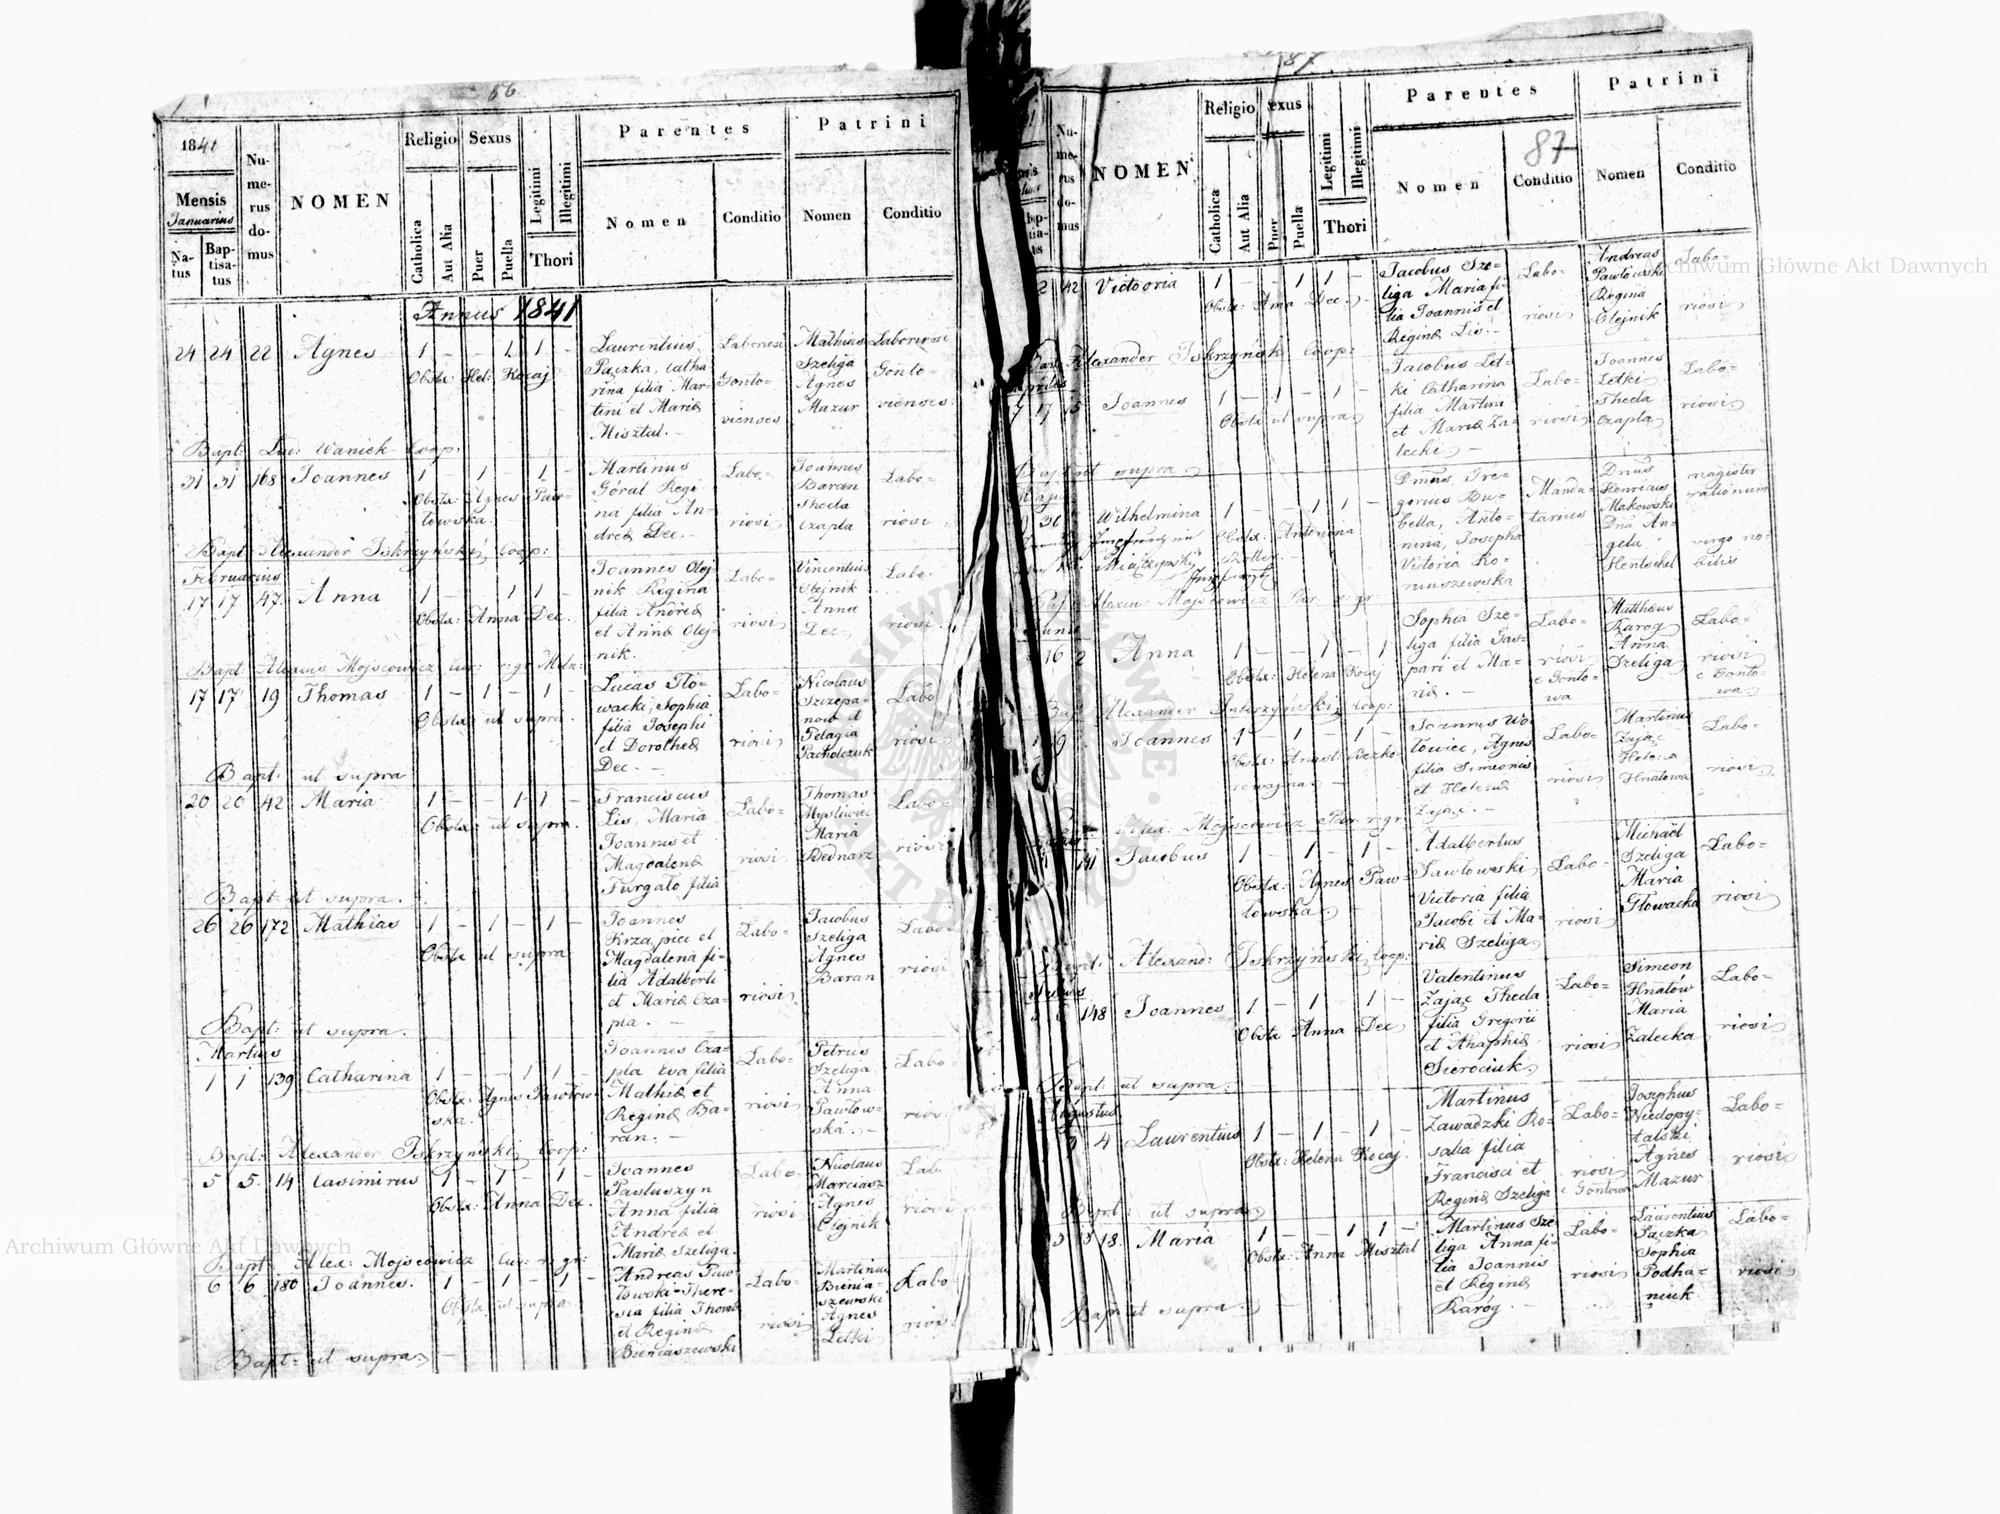 86
1841
Mensis
Januarius
Na-
tus
Bap-
tisa-
tus
Nu-
me-
rus
do-
mus
NOMEN
Religio
Catholica
Aut Alia
Sexus
Puer
Puella
Legitimi
Illegitimi
Thori
Parentes
Nomen
Conditio
Patrini
Nomen
Conditio
Annus 1841
24 24 22 Agnes 1 - - 1 1 -
Obstx: Hel: Kocaj
Laurentius
Pączka, Catha
rina filia Mar-
tini et Mariæ
Misztal. -
Laboriosi
Gonto-
vienses
Mathias
Szeliga
Agnes
Mazur
Laboriosi
Gonto-
vienses
Bapt: Lud: Waniek Coop:
31 31 168 Joannes 1 1 - 1 -
Obstx: Agnes Paw-
łowska.
Martinus
Góral Regi
na filia An-
dreæ Dec. -
Labo-
riosi
Joannes
Baran
Theda
Czapla
Labo-
riosi
Bapt: Alexander Iskrzyński Coop:
Februarius
17 17 47 Anna 1 - 1 1
Obstx: Anna Dec.
Joannes Olej
nik Regina
filia Andreæ
et Annæ Olej-
nik.
Labo-
riosi
Vincentius
Olejnik
Anna
Dec
Labo-
riosi
Bapt: Alexius Mojscowicz Cur: r: gr:
17 17 19 Thomas 1 - 1 - 1 -
Obstx: ut supra.
Lucas Gło-
wacki, Sophia
filia Josephi
et Dorotheæ
Dec. -
Labo-
riosi
Nicolaus
Szczepa-
now et
Pelagia
Pacholczuk
Labo
riosi
Bapt: ut supra
20 20 42 Maria 1 - - 1 1 -
Obstx: ut supra.
Franciscus
Lis, Maria
Joannis et
Magdalenæ
Furgało filia
Labo-
riosi
Thomas
Mysliwiec
Maria
Bednarz
Labo-
riosi
Bapt: ut supra.
26 26 172 Mathias 1 - 1 - 1 -
Obstx ut supra
Joannes
Krzapici et
Magdalena fi-
lia Adalberti
et Mariæ Cza-
pla. -
Labo-
riosi
Jacobus
Szeliga
Agnes
Baran
Labo-
riosi
Bapt: ut supra.
Martius
1 1 139 Catharina 1 - - 1 1 -
Obstx: Agnes Pawłow-
ska.
Joannes Cza-
pla Eva filia
Mathiæ et
Reginæ Ba-
ran. -
Labo-
riosi
Petrus
Szeliga
Anna
Pawłow-
ska. -
Labo-
riosi
Bapt: Alexander Iskrzyński Coop:
5 5 14 Casimirus 1 - 1 - 1 -
Obstx: Anna Dec.
Joannes
Pastuszyn
Anna filia
Andreæ et
Mariæ Szeliga.
Labo-
riosi
Nicolaus
Marciasz
Agnes
Olejnik
Lab
riosi
Bapt: Alex: Mojscowicz Cur: r: gr:
6 6 180 Joannes. 1 - 1 - 1 -
Obstx ut supra
Andreas Paw-
łowski There-
sia filia Thomæ
et Reginæ
Bieniaszewski
Labo-
riosi
Martinus
Bienia-
szewski
Agnes
Letki
Labo
riosi
Bapt: ut supra. -
87
Nu-
me-
rus
do-
mus
NOMEN
Religio
Catholica
Aut Alia
Sexus
Puer
Puella
Legitimi
Illegitimi
Thori
Parentes
Nomen
Conditio
87
Patrini
Nomen
Conditio
2 42 Victoria 1 - - 1 1 -
Obstx: Anna Dec.
Jacobus Sze-
liga Maria fi-
lia Joannis et
Reginæ Lis. -
Labo-
riosi
Andreas
Pawłowski
Regina
Olejnik
Labo-
riosi
Bapt: Alexander Iskrzyński Coop:
Aprilis
17 17 15 Joannes 1 - 1 - 1 -
Obstx ut supra.
Jacobus Let-
ki Catharina
filia Martini
et Mariæ Za-
lecki -
Labo-
riosi
Joannes
Letki
Theda
Czapla
Labo-
riosi
Bapt: ut supra
30 Wilhelmina 1 - - 1 1 -
Obstx: Antonina
Dnus Gre-
gorius Bu-
bella, Anto-
nina, Josepha
Victoria Ro-
muszewska
Manda-
tarius
Dnus
Henricus
Makowski
Dna An-
gela
Hentschel
magister
rationum
virgo no-
bilis
Bapt: Alexius Mojscowicz Cur: r: gr:
Junius
16 2 Anna 1 - - 1 - 1
Obstx: Helena Kocaj
Sophia Sze-
liga filia Gas-
pari et Ma-
riæ. -
Labo-
riosi
e Gonto-
wa
Matthæus
Karog
Anna
Szeliga
Labo-
riosi
e Gonto-
wa
Bapt: Alexander Iskrzyński Coop:
9 Joannes 1 - 1 - 1 -
Joannes Wo-
łowiec, Agnes
filia Simeonis
et Helenæ
Zając. -
Labo-
riosi
Martinus
Zając
Helena
Hnatowa
Labo-
riosi
Alex: Mojscowicz Par: r: gr:
141 Jacobus 1 - 1 - 1 -
Obstx: Agnes Paw-
łowska.
Adalbertus
Pawłowski
Victoria filia
Jacobi et Ma-
riæ Szeliga
Labo-
riosi
Michaël
Szeliga
Maria
Głowacka
Labo-
riosi
Bapt: Alexand: Iskrzyński Coop:
Julius
148 Joannes 1 - 1 - 1 -
Obstx Anna Dec
Valentinus
Zając Theda
filia Gregorii
et Ahaphiæ
Sierociuk.
Labo-
riosi
Simeon
Hnatow
Maria
Zalecka
Labo-
riosi
Bapt: ut supra.
Augustus
9 4 Laurentius 1 - 1 - 1 -
Obstx: Helena Kocaj.
Martinus
Zawadzki Ro-
salia filia
Francisci et
Reginæ Szeliga
Labo-
riosi
e Gontowa
Josephus
Niedopy-
talski
Agnes
Mazur
Labo-
riosi
Bapt: ut supra
18. Maria 1 - - 1 1 -
Obstx: Anna Misztal
Martinus Sze-
liga Anna fi-
lia Joannis
et Reginæ
Karog. -
Labo-
riosi
Laurentius
Pączka
Sophia
Podha-
niuk
Labo-
riosi
Bapt: ut supra. -
Archiwum Główne Akt Dawnych
Archiwum Główne Akt Dawnych